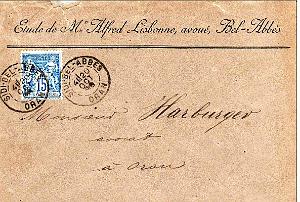 Etude de Me Alfred Lisbonne, avoué, Bel-Abbès
SIDI-BEL-ABBÈS
ORAN
15
SIDI-BEL-ABBÈS
ORAN
Monsieur Harburger
avoué
à Oran